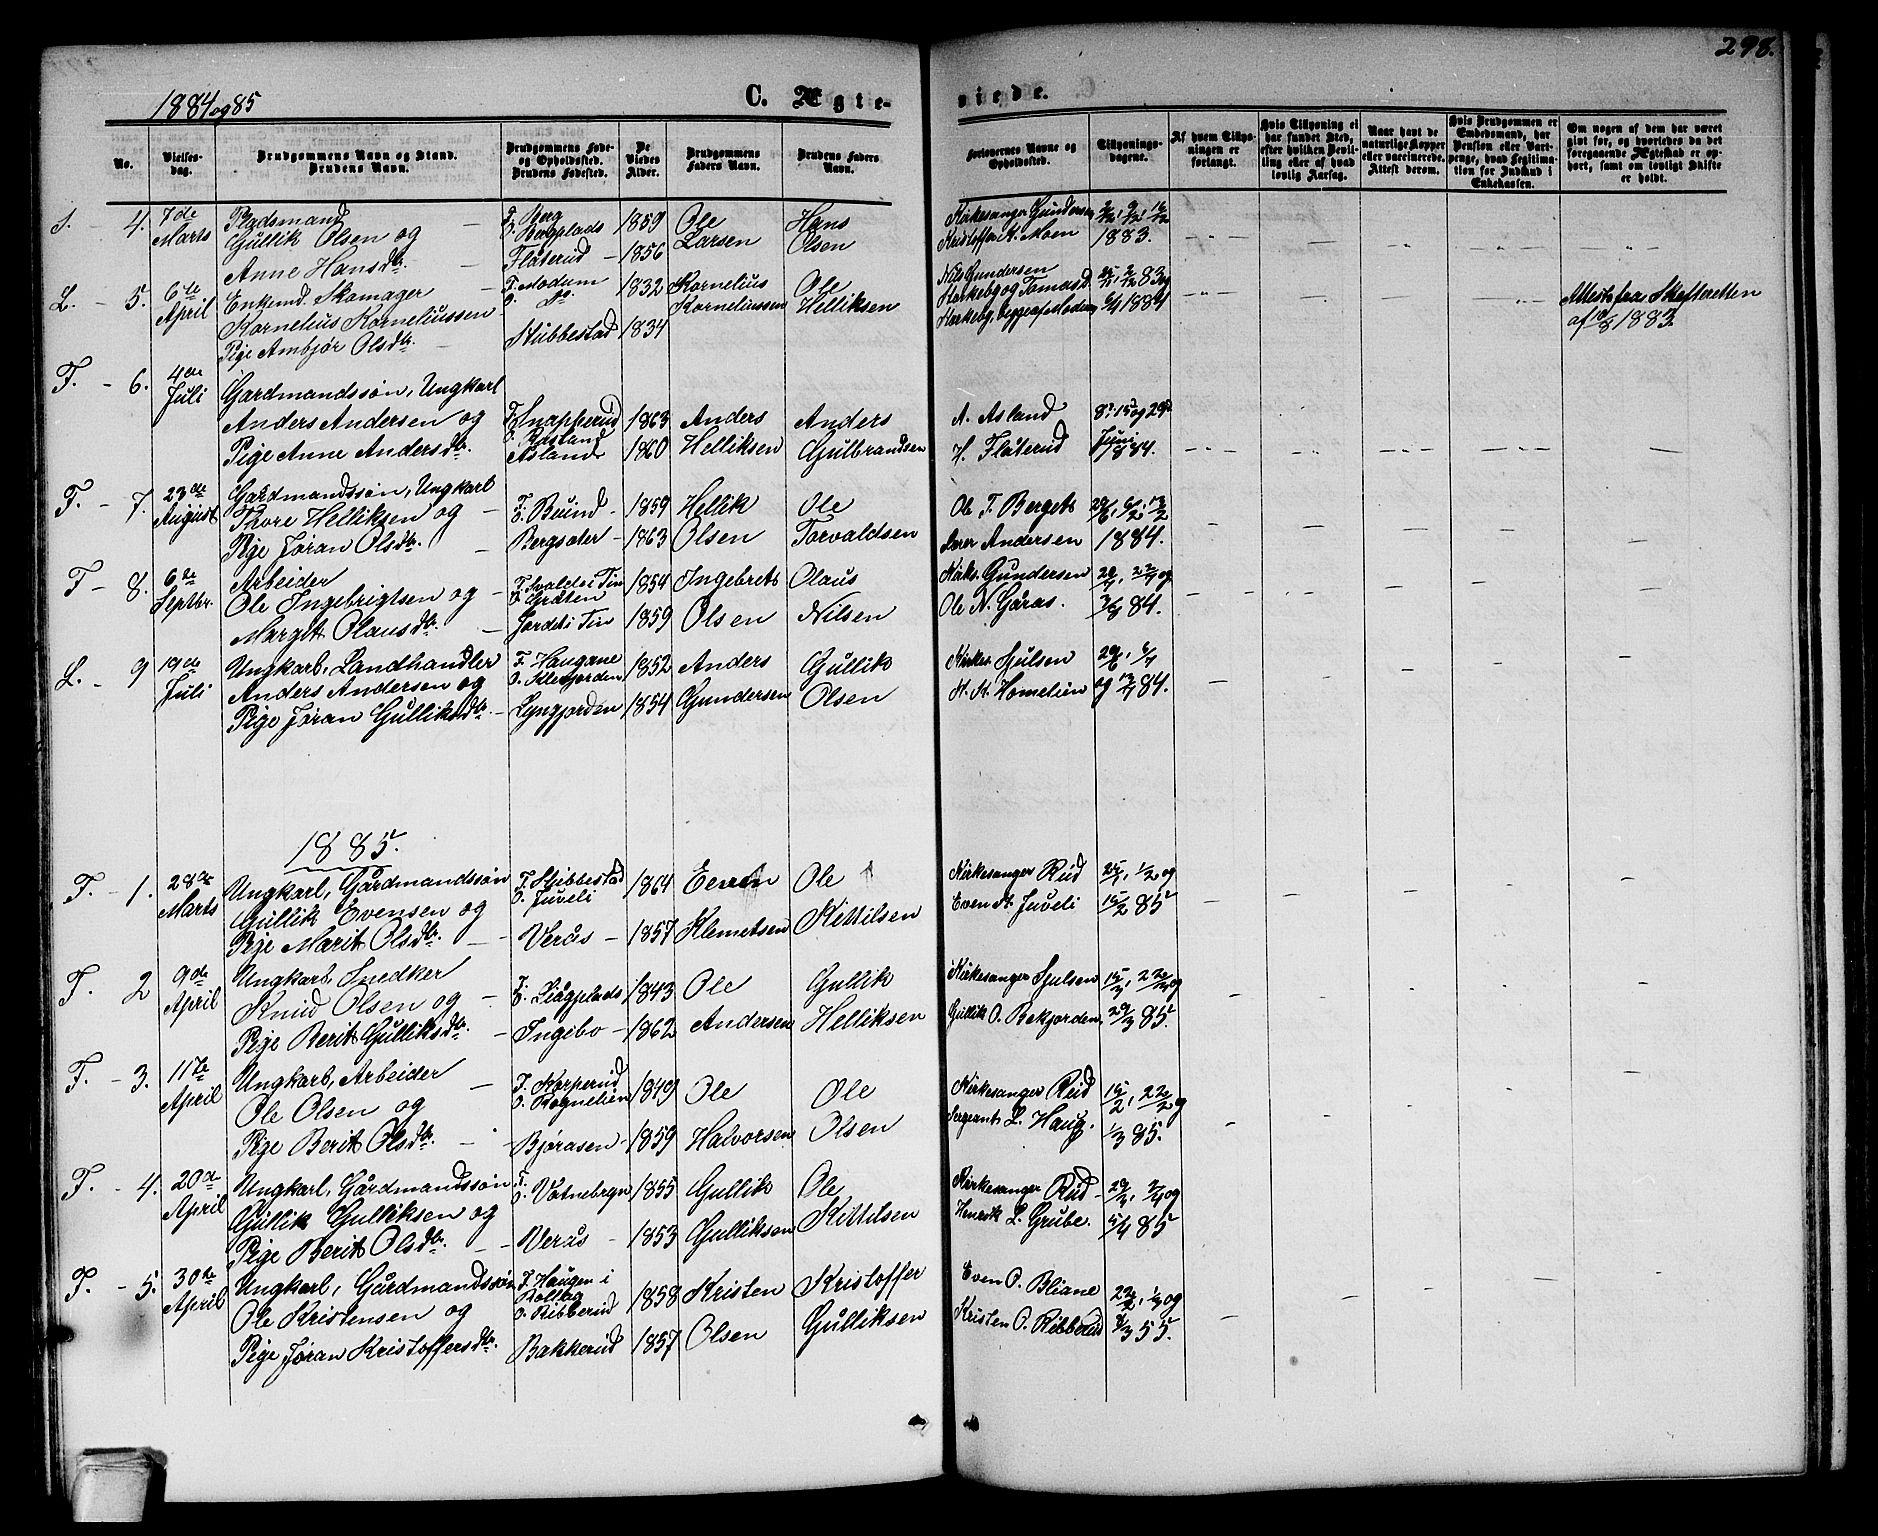 298.
1884 og 85
C. Ægte-
viede.
No.
Vielses-
dag.
Brudgommens Navn og Stand.
Brudens Navn.
Brudgommens Føde-
og Opholdssted.
Brudens Fødested.
De
Viedes
Alder.
Brudgommens
Faders Navn.
Brudens Faders
Navn.
Forlovernes Navne og
Opholdssted.
Tillysnings-
dagene.
Af hvem Tillys-
ningen er
forlangt.
Hvis Tillysning ei
har fundet Sted,
efter hvilken Bevil-
ling eller af hvad
lovlig Aarsag.
Naar havt de
naturlige Kopper
eller vaccinerede.
Attest derom.
Hvis Brudgommen er
Embedsmand, har
Pension eller Vart-
penge, hvad Legitima-
tion for Indskud i
Enkekassen.
Om nogen af dem har været
gift før, og hvorledes da det
foregaaende Ægteskab er op-
hørt, samt om lovligt Skifte
er holdt.
4. 7de Marts
Pladsmand
Gullik Olsen og
Anne Hansdtr.
F. Berg
O. Bergplads
Flåterud
1859
1856
Ole
Larsen
Hans
Olsen
Kirkesanger Gundersen
Kristoffer K. Moen
2/12, 9/12, 16/12
1883.
L. - 5. 6te April
Enkemd. Skomager
Kornelius Korneliussen
Pige Ambjør Olsdtr.
F. Modum
O. Do.
Stubbestad
1832
1834
Kornelius
Korneliussen
Ole
Helliksen
Nils Gundersen
Storkebg og Tomas
Storkebg. begge af Modum
6/4 1884
Attest fra Skifteretten
af 10/8 1883.
F. - 6. 4de Juli
Gardmandssøn, Ungkarl
Anders Andersen og
Pige Anne Andersdtr.
F. Knapperud
O. Åsland
Åsland
1863
1860
Anders
Helliksen
Anders
Gulbrandsen
A. Asland
H. Flåterud
8de 15de og 29de
Juni
1884.
F. - 7. 23de August
Gårdmandssøn, Ungkarl
Thore Helliksen og
Pige Jøran Olsdtr.
F. O. Buind
Bergsæter
1859
1863
Hellik
Olsen
Ole
Torvaldsen
Ole T. Berget
Andersen
1884.
F - 8. 6te Septbr.
Arbeider
Ole Ingebrigtsen og
Margit Olausdtr.
i Tin
O. Gråten
Jordet i Tin
1854
1859
Ingebret
Olsen
Olaus
Nilsen
Kirks. Gundersen
Ole N. Gåras.
20/7, 27/7 og
3/8 84.
L. - 9 19de Juli
Ungkarl, Landhandler
Anders Andersen og
Pige Jøran Gulliksdtr.
F. Haugane
O. Klevjorden
Lyngjorden
1852
1854
Anders
Gundersen
Gullik
Olsen
Kirkes. Sjulsen
St. St. Homelien
29/6, 6/7
og 13/7 84.
1885.
F. - 1. 28de Marts
Ungkarl, Gårdmandssøn
Gullik Evensen og
Pige Marit Olsdtr.
F. Stubbestad
O. Juveli
Verås
1864
1857
Even
Klemetsen
Ole
Kittilsen
Kirkesanger Rud
Even St. Juveli
25/1, 1/2 og
15/2 85
F. 2 9de April
Ungkarl, Snedker
Knud Olsen og
Pige Berit Gulliksdtr.
F. O. Liågplads
Ingebo
1843
1862
Ole
Andersen
Gullik
Helliksen
Kirkesanger Sjulsen
Gullik O. Bekjorden
15/3, 22/3 og
29/3 85.
F. - 3. 11te April
Ungkarl, Arbeider
Ole Olsen og
Pige Berit Olsdtr.
F. Korperud
O. Rognelien
Bjøråsen
1849
1859
Ole
Halvorsen
Ole
Olsen
Kirkesanger Rud
Sergeant L. Haug.
15/2, 22/2 og
1/3 85.
F. - 4. 20de April
Ungkarl, Gårdmandssøn
Gullik Gulliksen og
Pige Berit Olsdtr.
F. O. Vatnebryn
Verås
1855
1853
Gullik
Gulliksen
Ole
Kittilsen
Kirkesanger Rud
Henrik L. Grube.
29/3, 3/4 og
5/4 85
F. - 5. 30te April
Ungkarl, Gårdmandssøn
Ole Kristensen og
Pige Jøran Kristoffersdtr.
F. Haugen i
Rollag
O. Ribberud
Bakkerud
1858
1857
Kristen
Olsen
Kristoffer
Gulliksen
Even O. Bliane
Kristen O. Ribberud
22/2, 1/3 og
8/3 55.